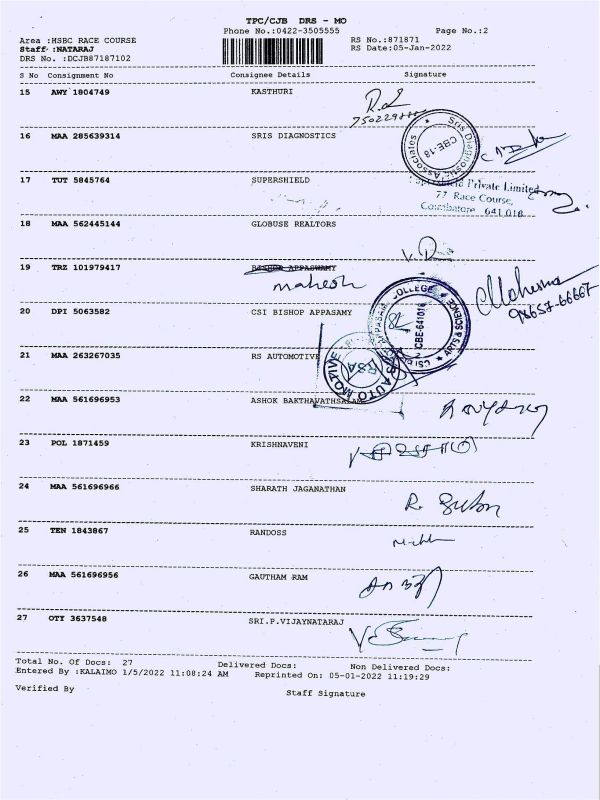 TPC/CJB DRS - MO
Phone No.:0422-3505555 Page No.:2
Area :HSBC RACE COURSE RS No.:871871
Staff :NATARAJ RS Date:05-Jan-2022
DRS No. :DCJB87187102
S No Consignment No Consignee Details Signature
15 AWY 1804749 KASTHURI
16 MAA 285639314 SRIS DIAGNOSTICS
Sris Diagnostic Associates
CBE-18
17 TUT 5845764 SUPERSHIELD
Private Limited
77 Race Course,
Coimbatore 641 018
18 MAA 562445144 GLOBUSE REALTORS
19 TRZ 101979417 BISHOP APPASWAMY
mahesh
98657-66667
20 DPI 5063582 CSI BISHOP APPASAMY
COLLEGE ARTS & SCIENCE
CBE-641018
21 MAA 263267035 RS AUTOMOTIVE
RS AUTOMOTIVE
RSA
22 MAA 561696953 ASHOK BAKTHAVATHSALAM
23 POL 1871459 KRISHNAVENI
24 MAA 561696966 SHARATH JAGANATHAN
25 TEN 1843867 RANDOSS
26 MAA 561696956 GAUTHAM RAM
27 OTY 3637548 SRI.P.VIJAYNATARAJ
Total No. Of Docs: 27 Delivered Docs: Non Delivered Docs:
Entered By :KALAIMO 1/5/2022 11:08:24 AM Reprinted On: 05-01-2022 11:19:29
Verified By Staff Signature